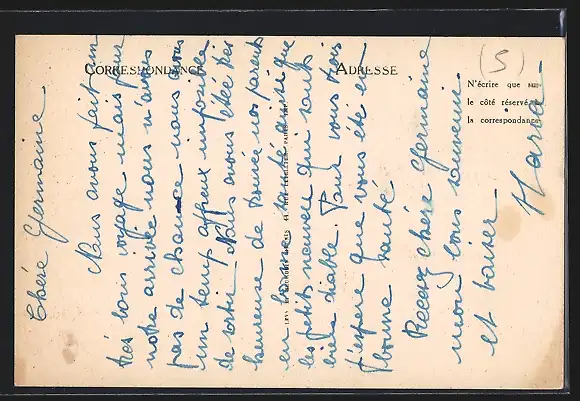 CORRESPONDANCE
ADRESSE
(5)
N'écrire que sur
le côté réservé
la correspondance
Chère Germaine
Nous avons fait un
très bon voyage mais pour
notre arrivée nous n'avons
pas de chance nous avons
un temp affreux imposible
de sortir. Nous avons étée très
heureuse de trouvée nos parents
en bonne santé ainsi que
les petit neveux qui sont
bien diable. Pour vous trois
j'espère que vous été en
bonne santé
Recevez chère Germaine
mon bons souvenir
et baiser
Maria